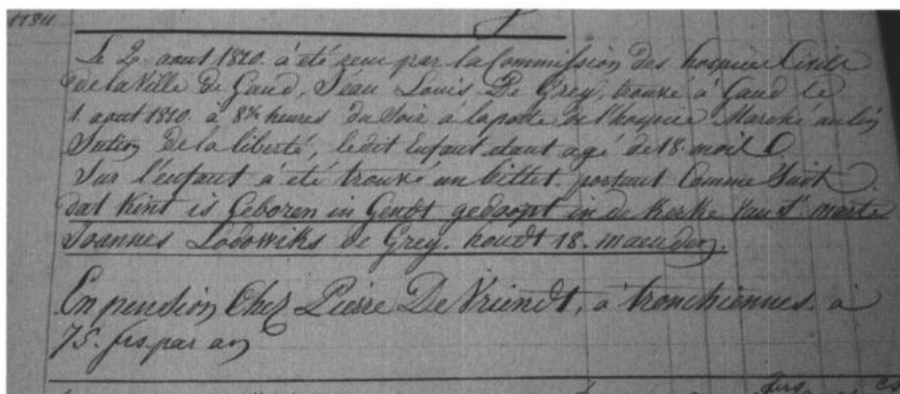 Le 2. aout 1810. à été recu par la Commission des hospices Civils
de la Ville de Gand, Jean Louis De Grey, trouvé à Gand le
1. aout 1810. à 8½ heures du Soir à la porte de l'hospice Marché au lin
Section de la liberté, ledit Enfant étant agé de 18. mois
Sur l'enfant à été trouvé un billet. portant Comme Suit
dat Kint is Geboren in Gendt gedoopt in de Kerke van St. marte
Joannes Lodowiks de Grey. houdt 18. maenden.
En pension Chez Pierre De Vriendt, à tronchiennes. à
75. frs. par an